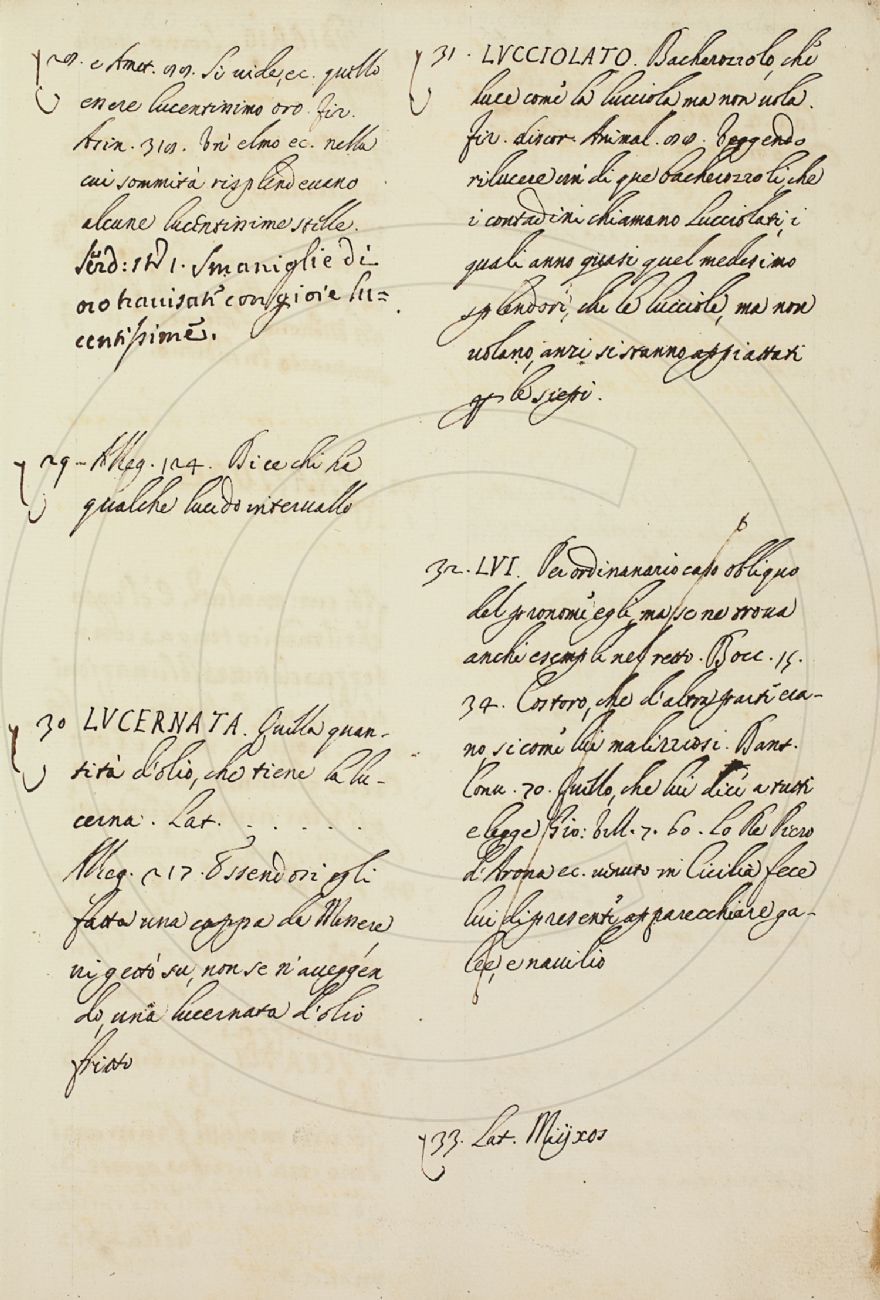 28. e Amet. 99. Si vide, ec. quello
essere lucentissimo oro. fir.
Asin. 318. Un' elmo ec. nella
cui sommità risplendevano
alcune lucentissime stelle.
Serd: 171. Smaniglie di
oro travisati con gioie lu=
centissime.
29 - Alleg. 124. Dice chi ha
qualche lucido intervallo
30 LVCERNATA. Quella quan-
tità d'olio, che tiene la lu-
cerna. Lat. . . . . .
Alleg. 217. Essendosi egli
fatta una cappa da Messere,
vi gettò su, non se n'avveggen
do, una lucernata d'olio
fritto
31. LVCCIOLATO. Bacherozzolo, che
luce come la lucciola ma non vola.
fir. discor. Animal. 98. Veggendo
rilucere un di que bacherozzoli, che
i contadini chiamano Lucciolati, i
quali anno quasi quel medesimo
splendore, che le lucciole, ma non
volano, anzi si stanno appiattati
per le siepi.
32. LVI. Per ordinanario caso obliquo
del pronome egli, ma se ne trova
anche esempli nel retto. Bocc. 15.
34. Costoro, che d'altra parte era-
no sì come lui maliziosi. Dant.
Conv. 70. Quello, che lui dice a tutti
e legge Gio: Vill. 7. 60. Lo Re Piero
d'Arona ec. venuto in Cicilia fece
lui di presente apparecchiare ga-
lee, e navilio
33. Lat. Miÿxos